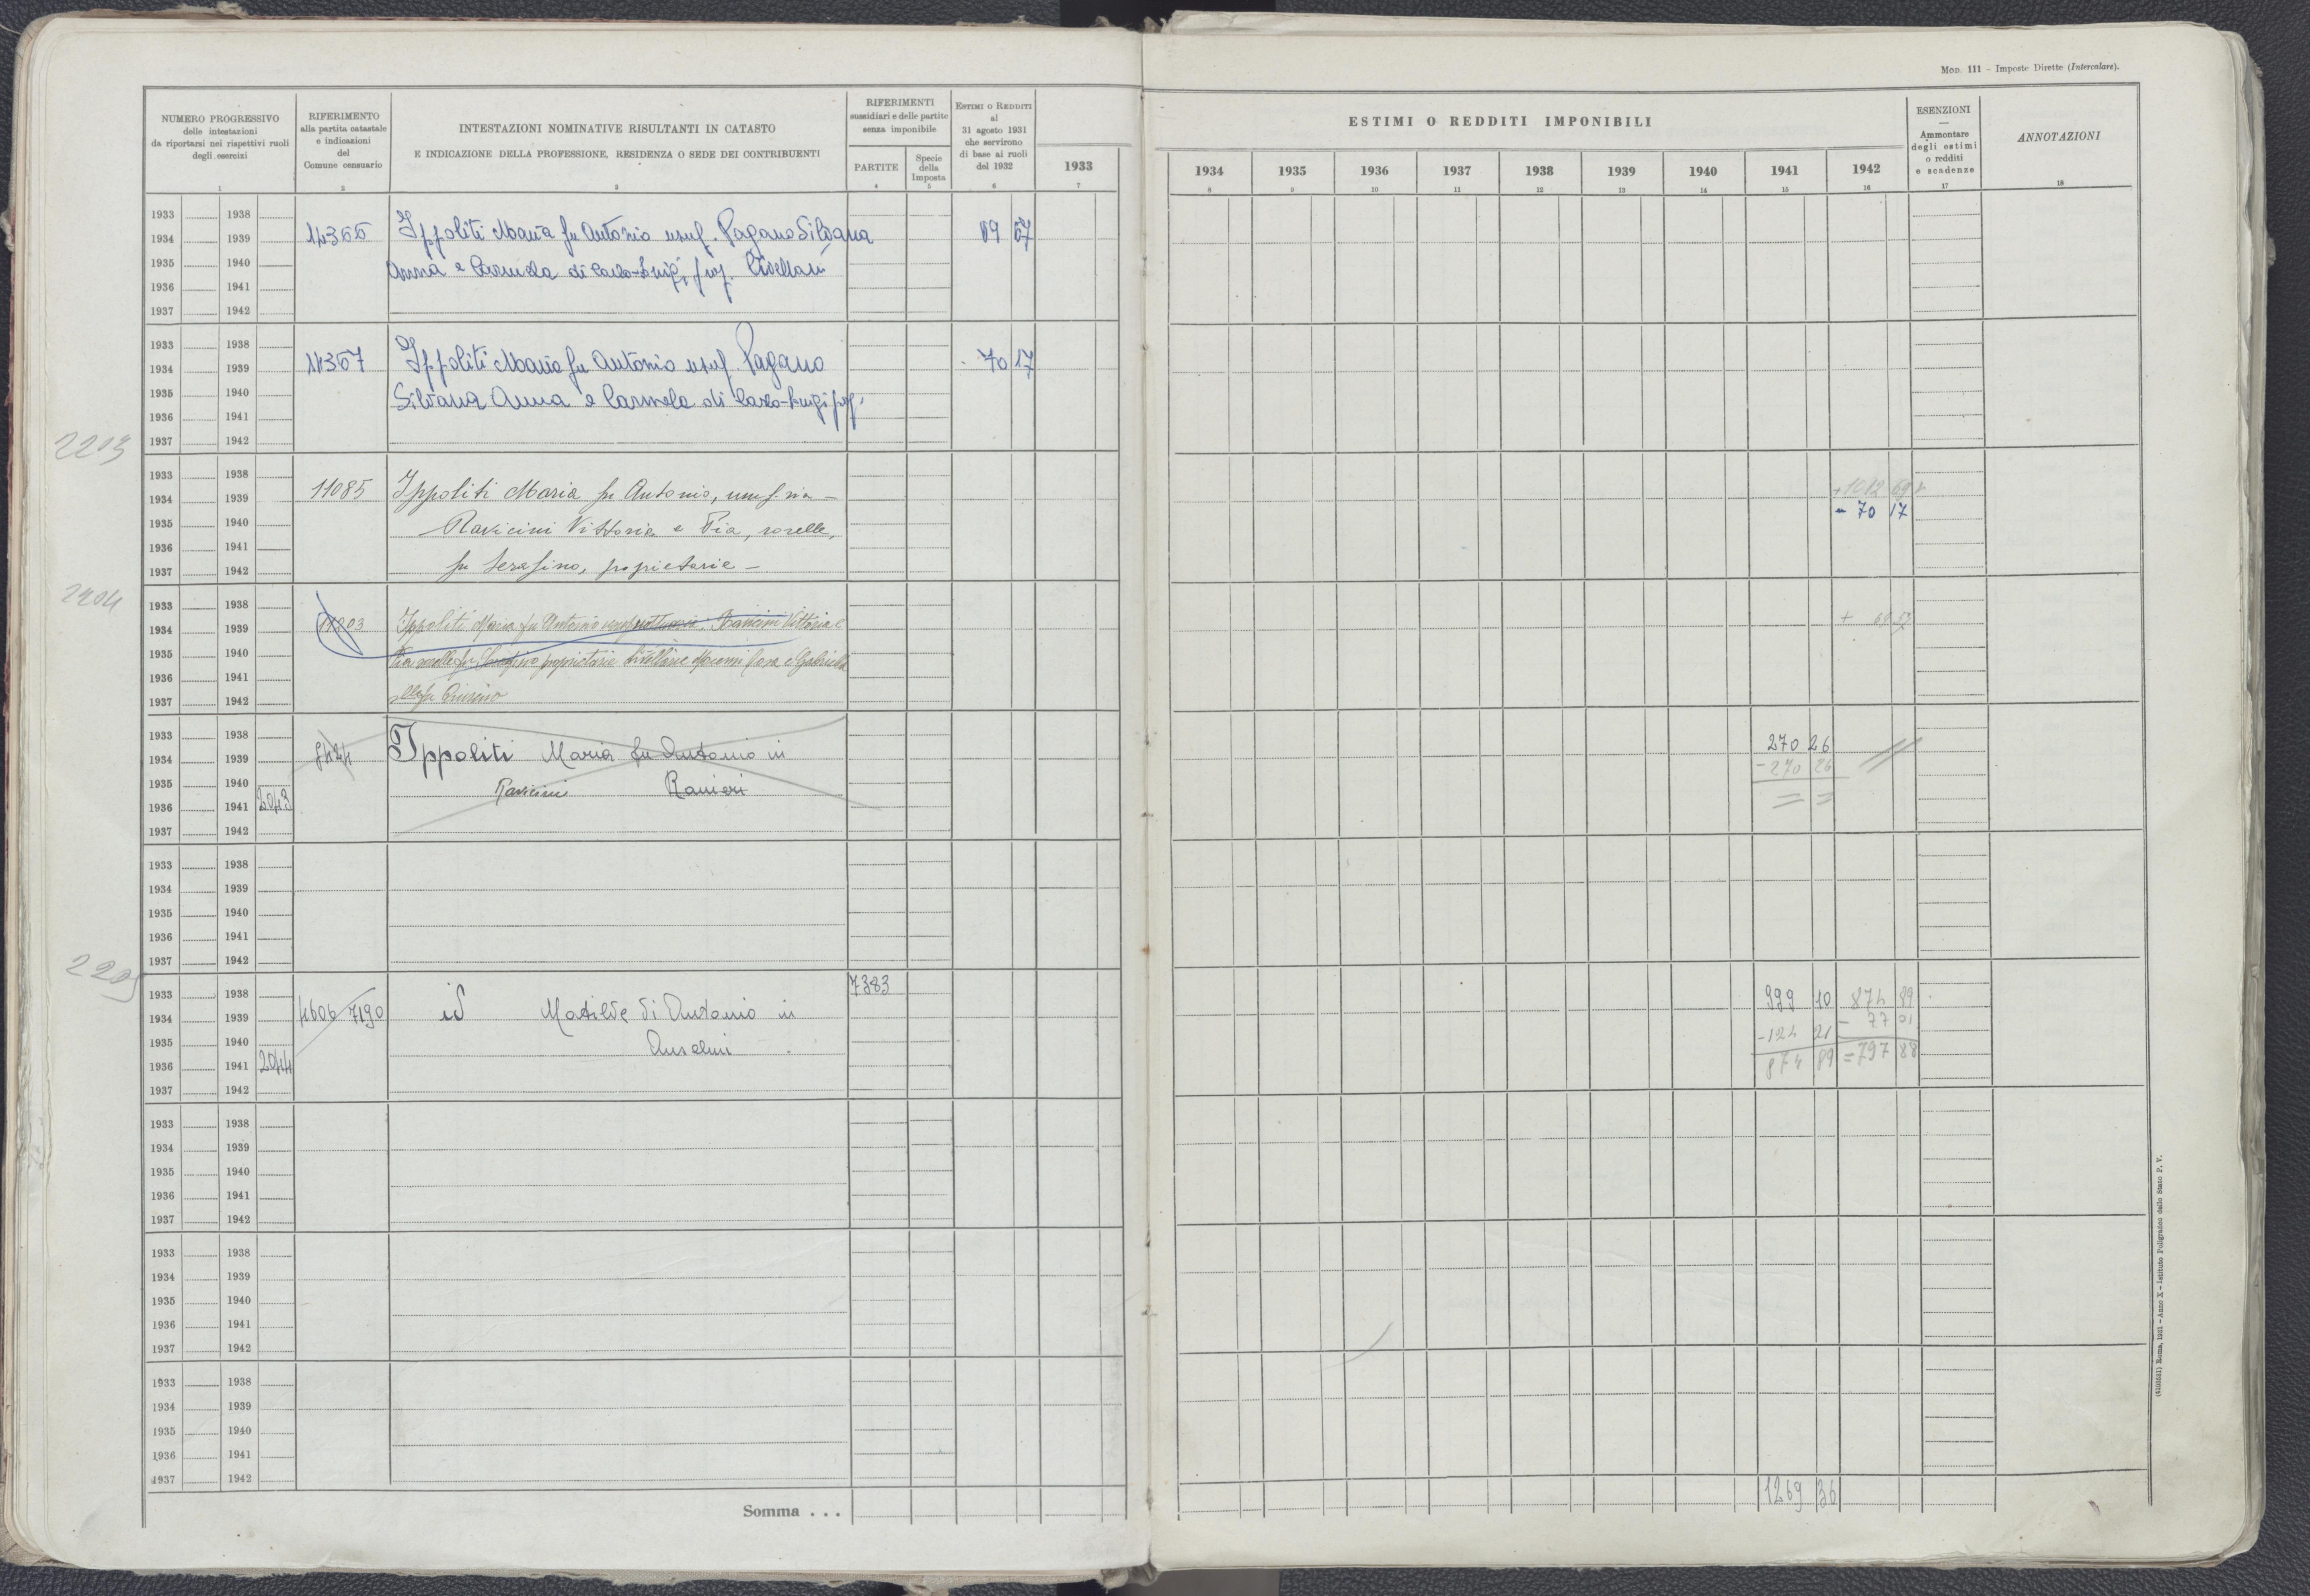 MOD. 111 – Imposte Dirette (Intercalare).
NUMERO PROGRESSIVO
delle intestazioni
da riportarsi nei rispettivi ruoli
degli esercizi
1
RIFERIMENTO
alla partita catastale
e indicazioni
del
Comune censuario
2
INTESTAZIONI NOMINATIVE RISULTANTI IN CATASTO
E INDICAZIONE DELLA PROFESSIONE, RESIDENZA O SEDE DEI CONTRIBUENTI
3
RIFERIMENTI
sussidiari e delle partite
senza imponibile
PARTITE
4
Specie
della
Imposta
5
ESTIMI O REDDITI
al
31 agosto 1931
che servirono
di base ai ruoli
del 1932
6
1933
7
ESTIMI O REDDITI IMPONIBILI
1934 1935 1936 1937 1938 1939 1940 1941 1942
8 9 10 11 12 13 14 15 16
ESENZIONI
—
Ammontare
degli estimi
o redditi
e scadenze
17
ANNOTAZIONI
18
1933 1938
1934 1939 Ippoliti Maria fu Antonio usuf. Pagano Silvana
1935 1940 Anna e Carmela di Carlo-Luigi, prop. Livellari
1936 1941
1937 1942
1933 1938
1934 1939 14367 Ippoliti Maria fu Antonio usuf. Pagano 70 17
1935 1940 Silvana Anna e Carmela di Carlo-Luigi prop.
1936 1941
1937 1942
2213
1933 1938
1934 1939 11085 Ippoliti Maria fu Antonio, usuf.ria – +1012 69
1935 1940 Ravicini Vittoria e Pia, sorelle, – 70 17
1936 1941
1937 1942 fu Serafino, proprietarie –
2204
1933 1938
1934 1939 Ippoliti Maria fu Antonio usufruttuaria, Vittoria e +
1935 1940 Pia sorelle fu Serafino proprietarie livellarie e Gabriella
1936 1941
1937 1942
1933 1938
1934 1939 8424 Ippoliti Maria fu Antonio in 270 26
1935 1940 Ravicini Ranieri – 270 26
1936 1941 2043 = =
1937 1942
1933 1938
1934 1939
1935 1940
1936 1941
1937 1942
2205
1933 1938 7383
1934 1939 4606 7190 id Matilde di Antonio in 999 10 874 89
1935 1940 Anselmi – 124 21 – 77 01
1936 1941 2044 874 89 = 797 88
1937 1942
1933 1938
1934 1939
1935 1940
1936 1941
1937 1942
1933 1938
1934 1939
1935 1940
1936 1941
1937 1942
1933 1938
1934 1939
1935 1940
1936 1941
1937 1942
Somma . . . 1269 36
Roma, 1931 – Anno X – Istituto Poligrafico dello Stato P. V.